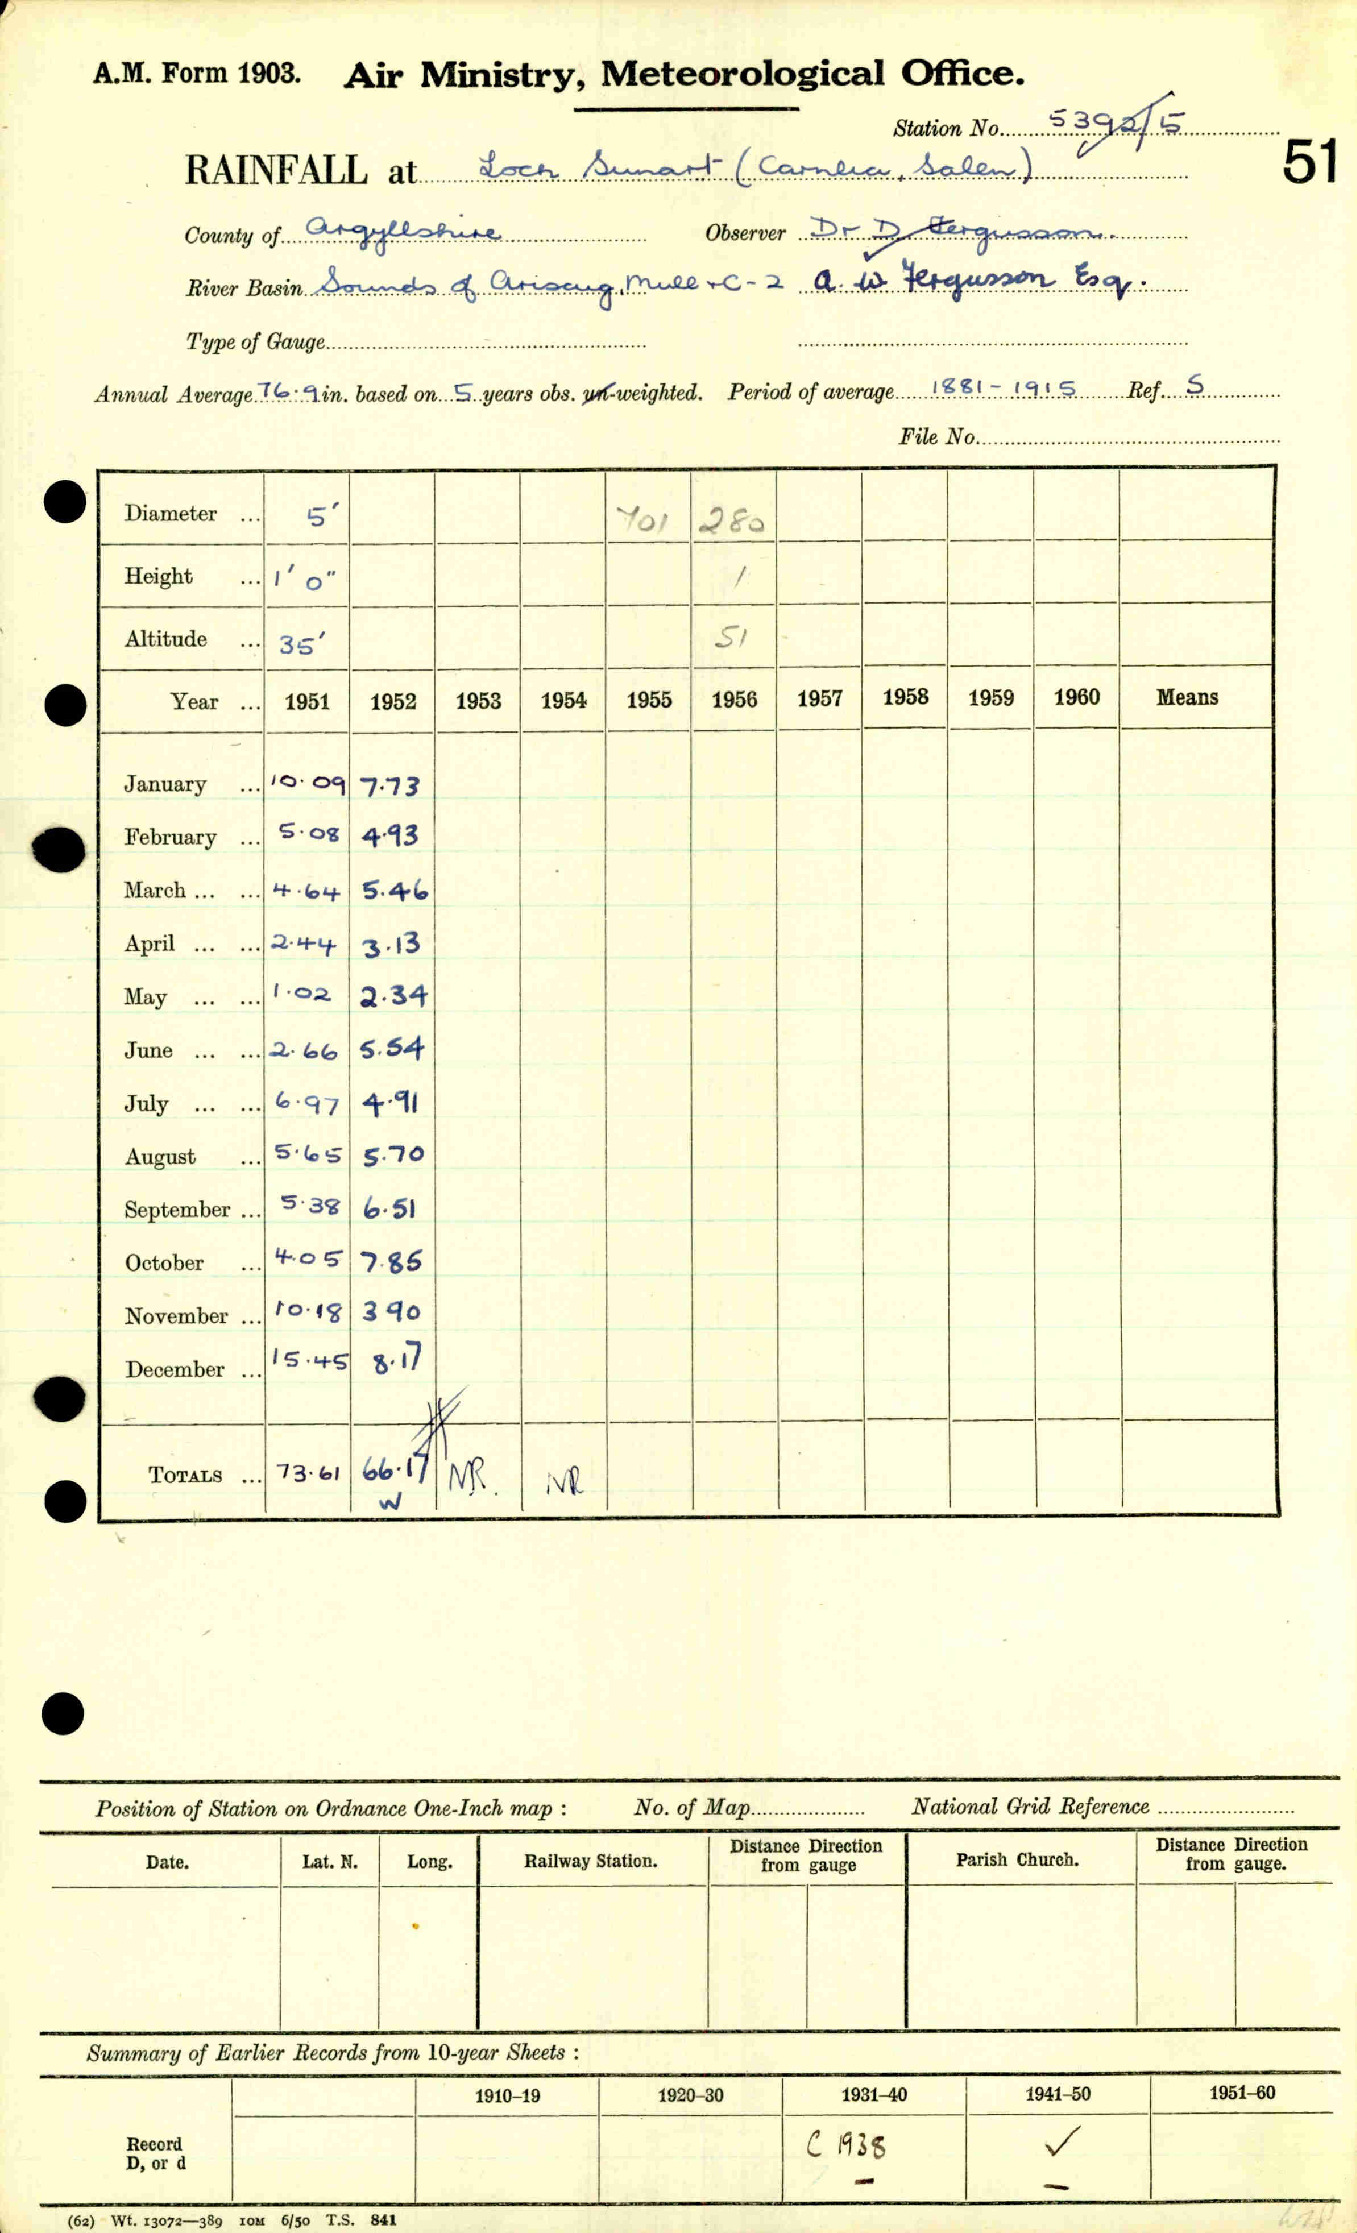 A.M. Form 1903. Air Ministry, Meteorological Office.
Station No. 5392/5
51
RAINFALL at Loch Sunart (Carnlia, Salen)
County of Argyllshire Observer Dr D. Fergusson.
River Basin Sounds of Arisaig, Mull + C-2 A. W Fergusson Esq.
Type of Gauge
Annual Average 76.9 in. based on 5 years obs. un-weighted. Period of average 1881-1915 Ref. S
File No.
Diameter ... 5' 701 280
Height ... 1' 0" 1
Altitude ... 35' 51
Year ... 1951 1952 1953 1954 1955 1956 1957 1958 1959 1960 Means
January ... 10.09 7.73
February ... 5.08 4.93
March ... ... 4.64 5.46
April ... ... 2.44 3.13
May ... ... 1.02 2.34
June ... ... 2.66 5.54
July ... ... 6.97 4.91
August ... 5.65 5.70
September ... 5.38 6.51
October ... 4.05 7.85
November ... 10.18 3 90
December ... 15.45 8.17
TOTALS ... 73.61 66.17 NR. NR
W
Position of Station on Ordnance One-Inch map : No. of Map National Grid Reference
Date. Lat. N. Long. Railway Station. Distance from gauge Direction Parish Church. Distance from gauge. Direction
Summary of Earlier Records from 10-year Sheets :
1910–19 1920–30 1931–40 1941–50 1951–60
Record D, or d C 1938 ✓
– –
(62) Wt. 13072—389 10M 6/50 T.S. 841